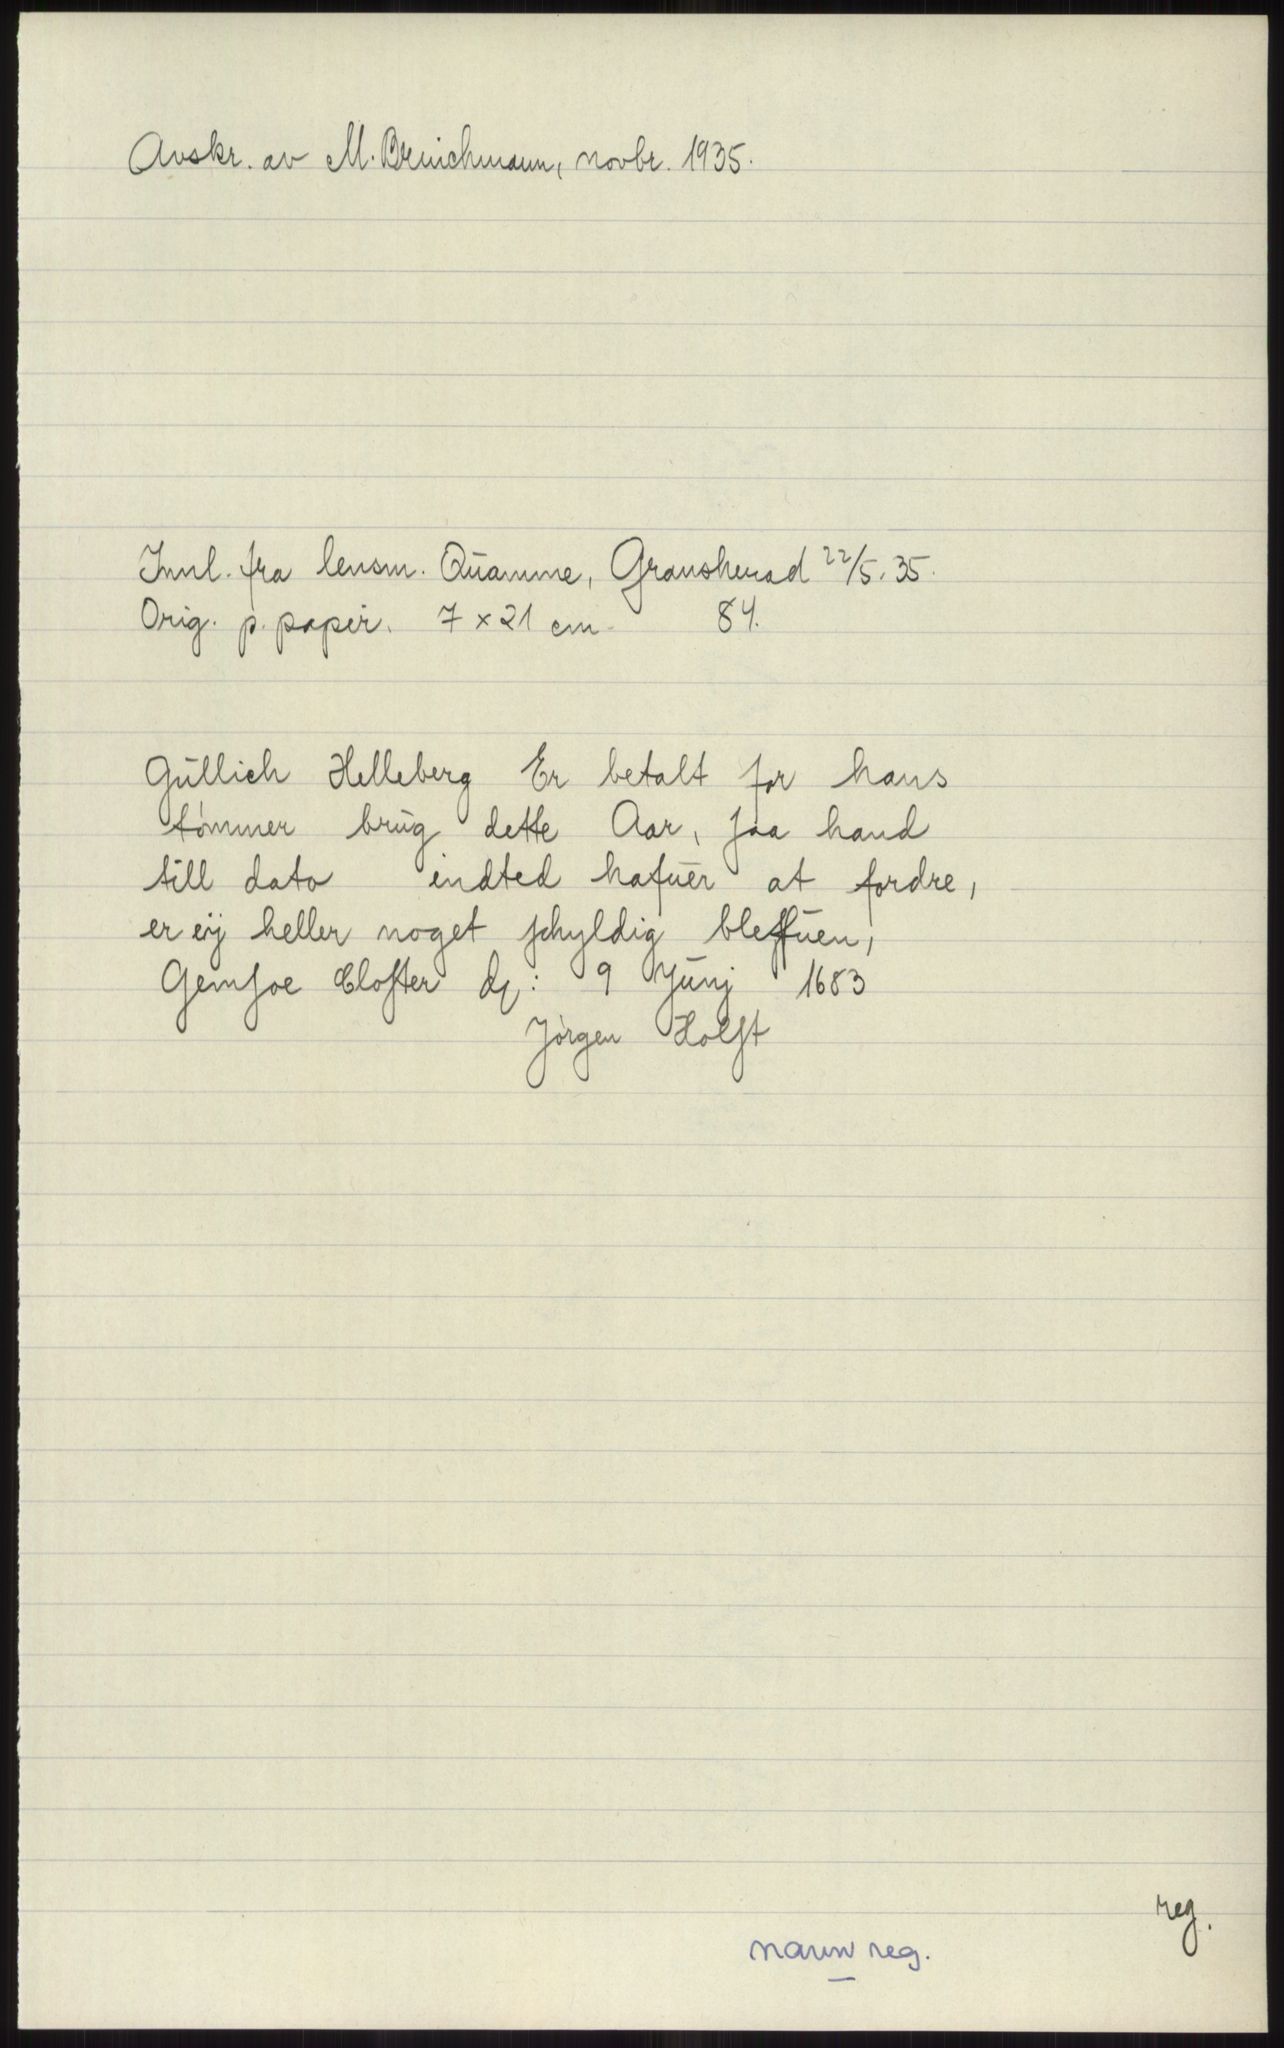 Avskr. av M. Brinchmann, novbr. 1935.
Innl. fra lensm. Quamme, Gransherad 22/5. 35.
Orig. p. papir. 7 x 21 cm. 84.
Gúllich Helleberg Er betalt for hans
tømmer brúg dette Aar, saa hand
till dato indted hafuer at fordre,
er eij heller noget schyldig bleffuen,
Gemsoe Closter dꝭ: 9 Junj 1683
Jørgen Holst
reg.
navn reg.